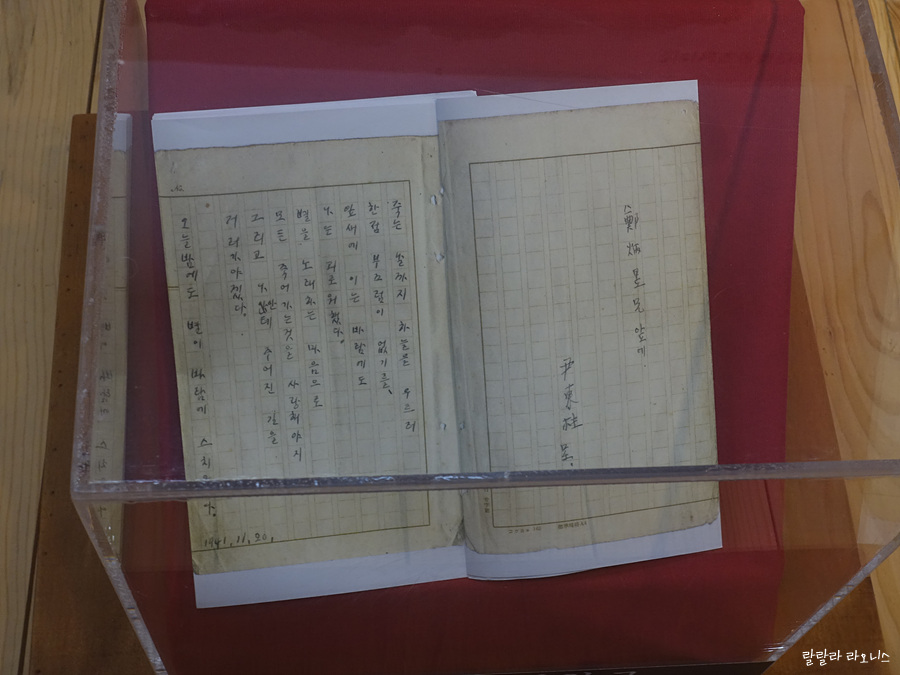 鄭炳昱兄앞에
尹東柱 呈.
죽는 날까지 하늘을 우르러
한점 부끄럼이 없기를,
잎새에 이는 바람에도
나는 괴로워했다.
별을 노래하는 마음으로
모든 죽어가는것을 사랑해야지
그리고 나안테 주어진 길을
거러가야겠다.
오늘밤에도 별이 바람에
1941.11.20.
랄랄라 라오니스